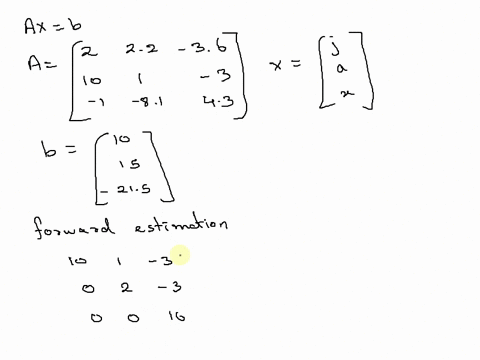 Ax = b
A = [2 2.2 -3.6
10 1 -3
-1 -8.1 4.3] x = [j
a
x]
b = [10
15
-21.5]
forward estimation
10 1 -3
0 2 -3
0 0 10